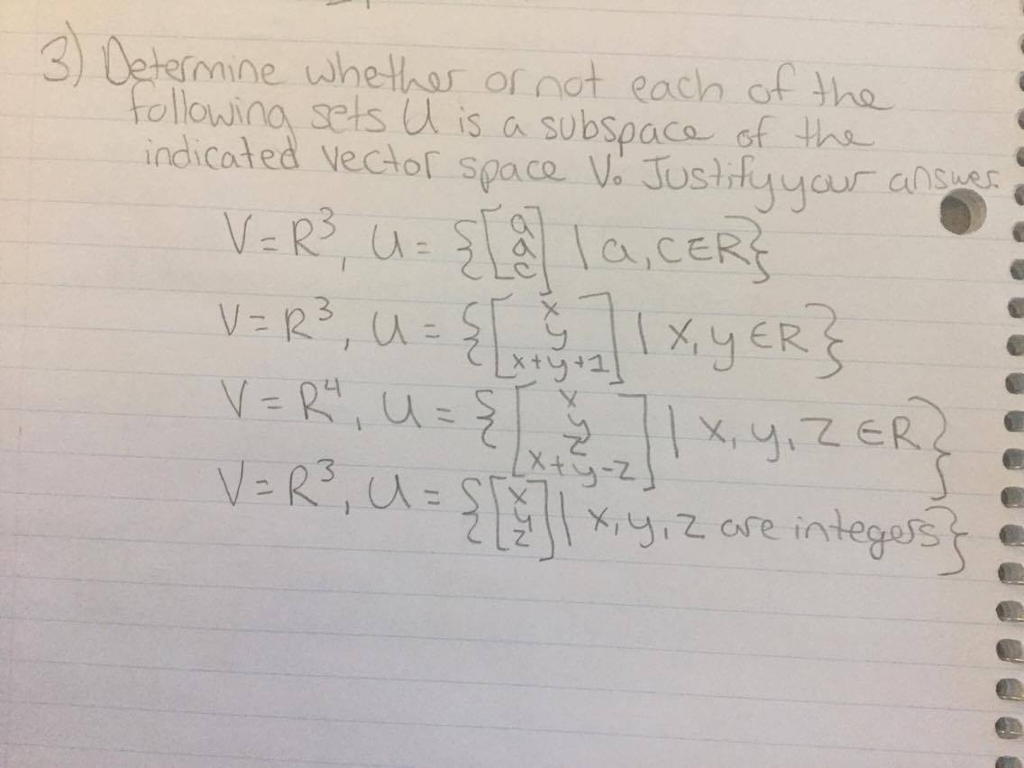 3) Determine whether or not each of the
following sets U is a subspace of the
indicated vector space V. Justify your answer.
V = R³, U = {[a a c] | a, c ∈ R}
V = R³, U = {[x y x+y+1] | x, y ∈ R}
V = R⁴, U = {[x y z x+y-z] | x, y, z ∈ R}
V = R³, U = {[x y z] | x, y, z are integers}